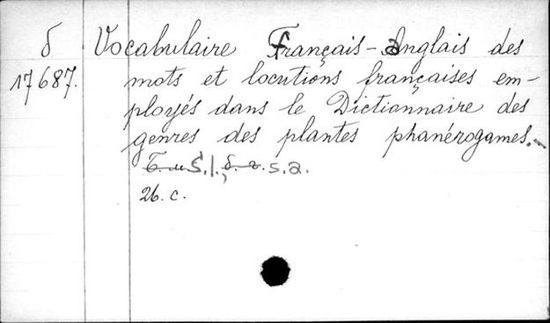 δ Vocabulaire Français-Anglais des
17687. mots et locutions françaises em-
ployés dans le Dictionnaire des
genres des plantes phanérogames.-
S.l., s.a.
26. c.